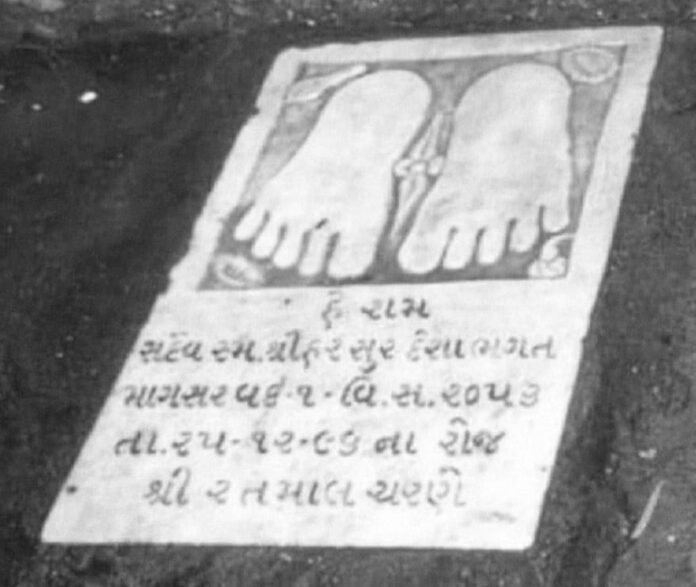 હે રામ
સદૈવ સ્મ.શ્રી હરસુર દેસા ભગત
માગસર વદ-૧-વિ.સ.૨૦૫૩
તા.૨૫-૧૨-૯૬ ના રોજ
શ્રી રતમાલ ચરણે